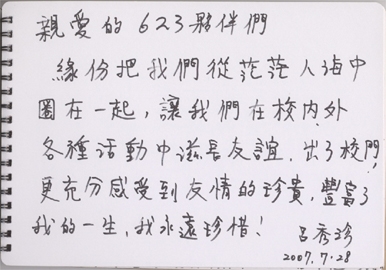 親愛的623夥伴們
緣份把我們從茫茫人海中
圈在一起,讓我們在校內外
各種活動中滋長友誼.出了校門,
更充分感受到友情的珍貴,豐富了
我的一生,我永遠珍惜!
呂秀珍
2007.7.28